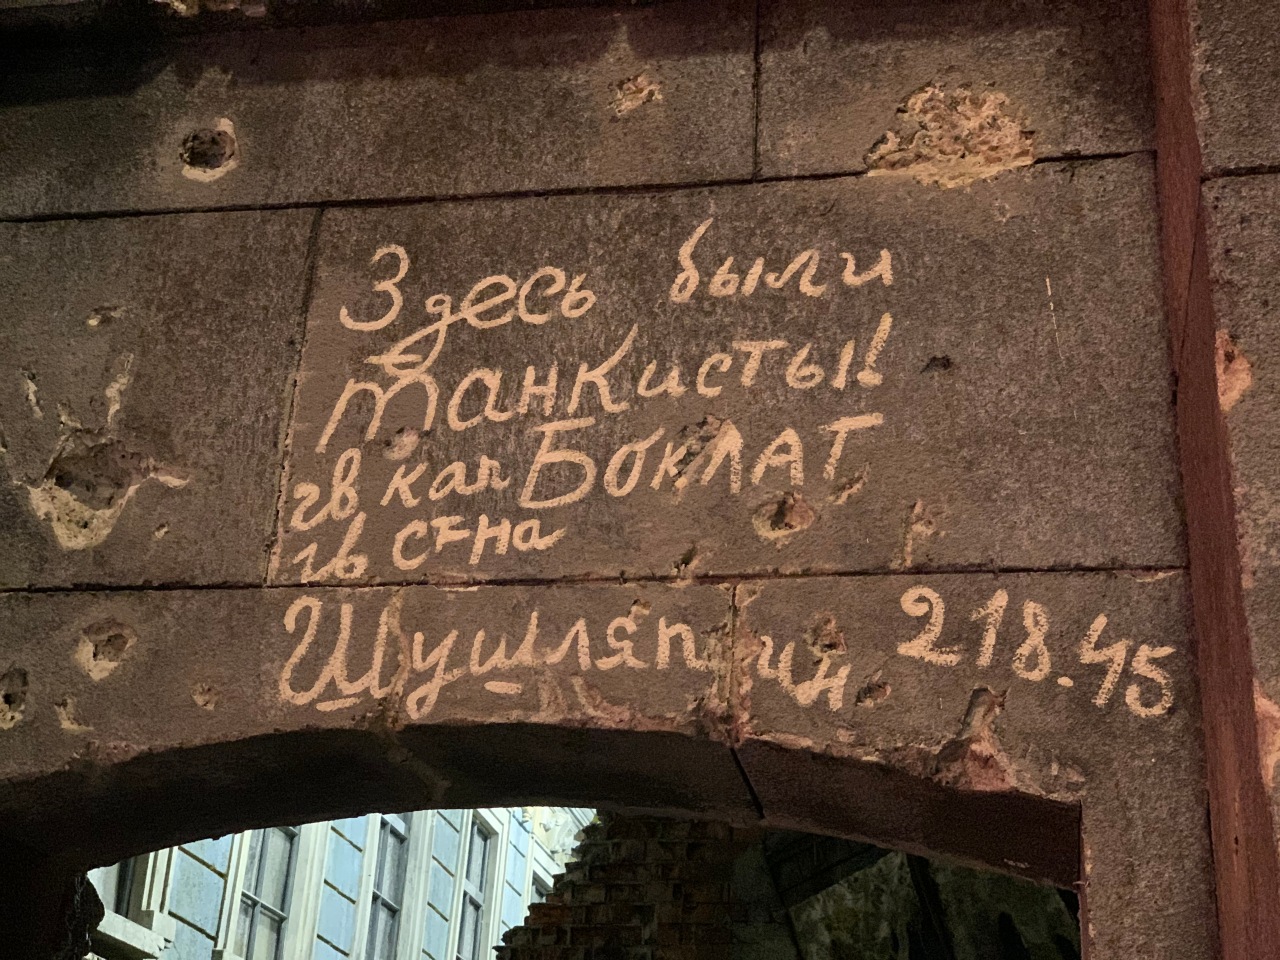 Здесь были
танкисты!
гв кап БокЛАТ
гв ст-на
Шушляпин 2 18.45